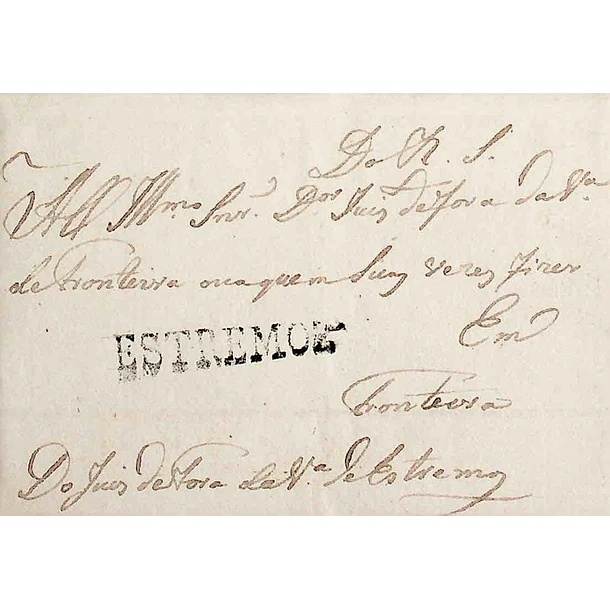 Do R. S.
Ao Illmo Snr. Dor Juis de Fora da Va
de Fronteira ou a quem Suas vezes fizer
Em
ESTREMOZ
Fronteira
Do Juis de Fora da Va de Estremoz